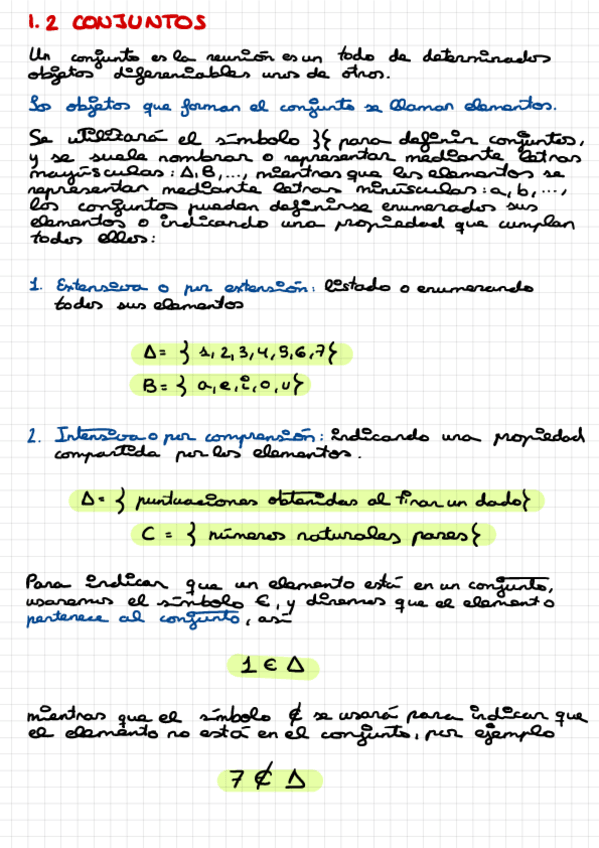 1.2 CONJUNTOS
Un conjunto es la reunión es un todo de determinados
objetos diferenciables unos de otros.
Los objetos que forman el conjunto se llaman elementos.
Se utilizará el símbolo }{ para definir conjuntos,
y se suele nombrar o representar mediante letras
mayúsculas: A, B, ..., mientras que los elementos se
representan mediante letras minúsculas: a, b, ...,
los conjuntos pueden definirse enumerados sus
elementos o indicando una propiedad que cumplan
todos ellos:
1. Extensiva o por extensión: listado o enumerando
todos sus elementos
A = } 1, 2, 3, 4, 5, 6, 7{
B = } a, e, i, o, u{
2. Intensiva o por comprensión: indicando una propiedad
compartida por los elementos.
A = { puntuaciones obtenidas al tirar un dado}
C = { números naturales pares{
Para indicar que un elemento está en un conjunto,
usaremos el símbolo €, y diremos que el elemento
pertenece al conjunto, así
1 € A
mientras que el símbolo ∉ se usará para indicar que
el elemento no está en el conjunto, por ejemplo
7 ∉ A